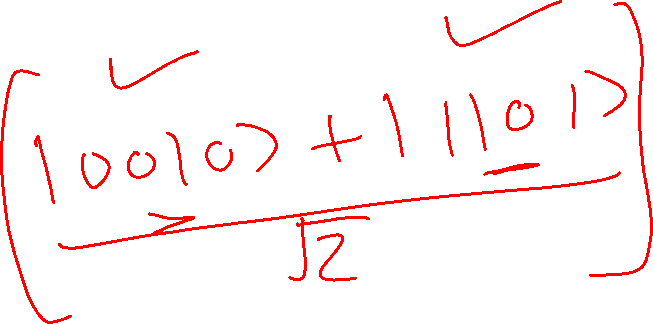 (|0010⟩ + |1101⟩)
√2